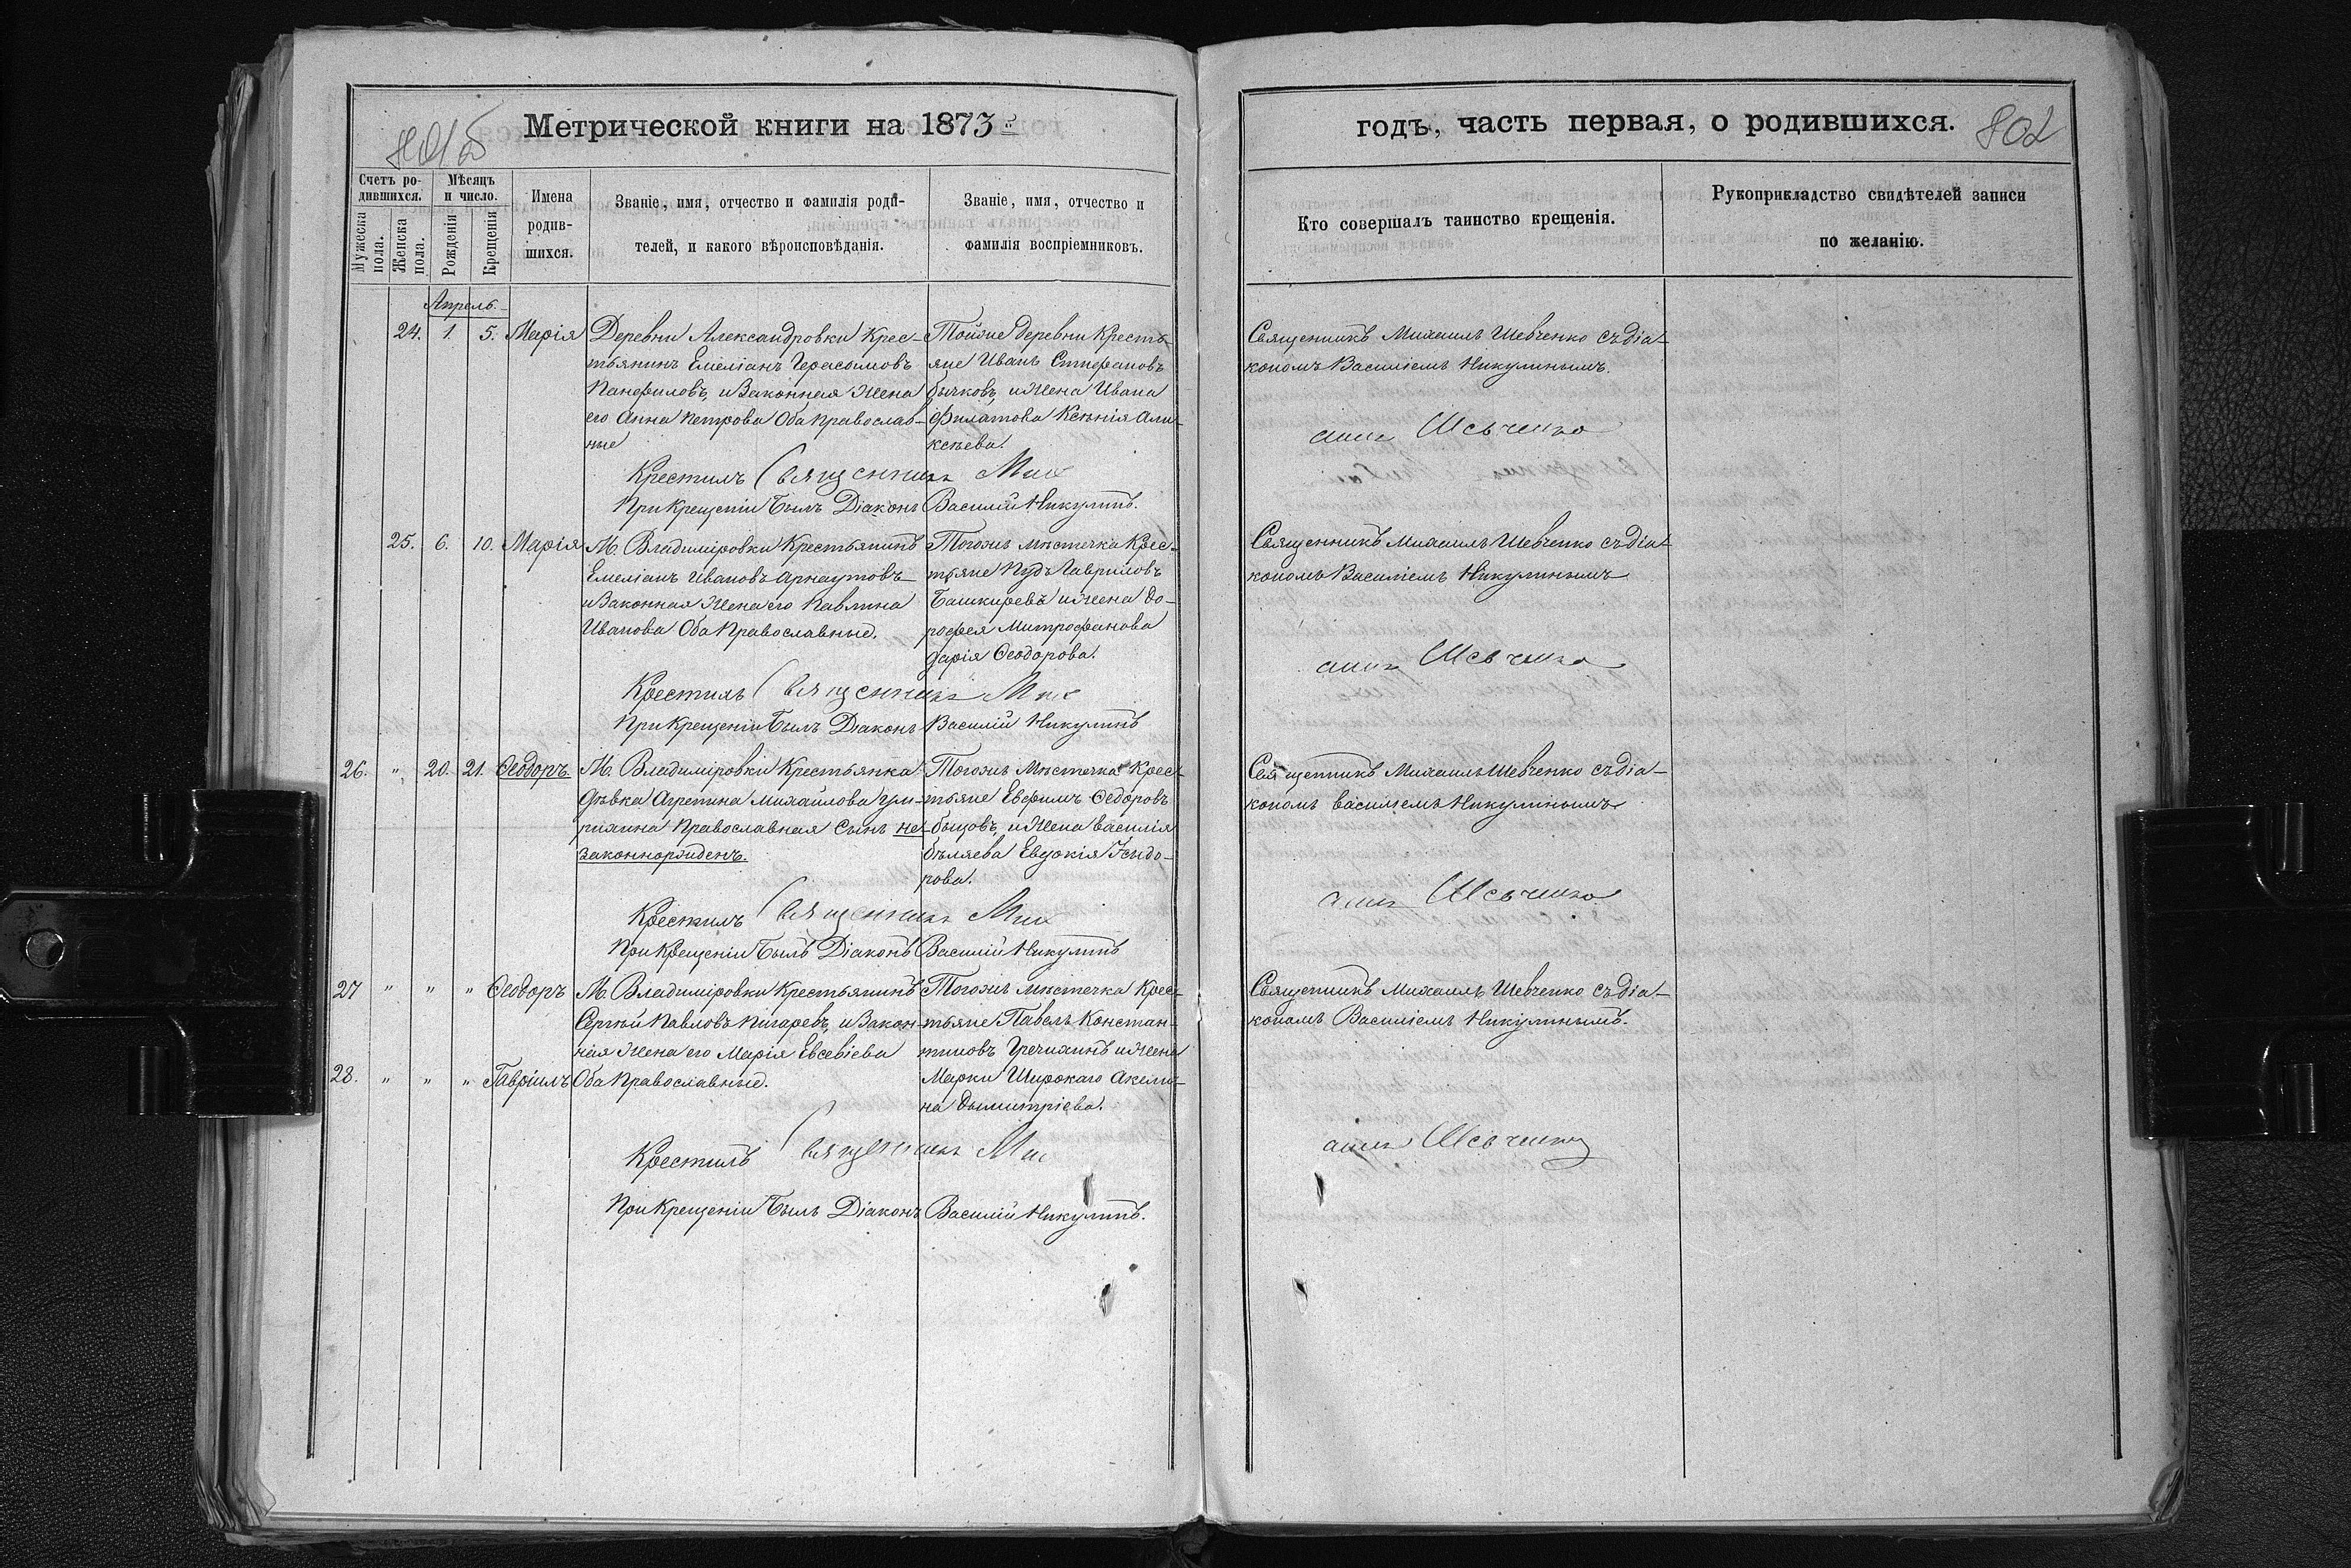 801об
Метрической книги на 1873й
Счетъ ро-
дившихся.
Мѣсяцъ
и число.
Мужеска
пола.
Женска
пола.
Рожденія
Крещенія
Имена
родив-
шихся.
Званіе, имя, отчество и фамилія роди-
телей, и какого вѣроисповѣданія.
Званіе, имя, отчество и
фамилія воспріемниковъ.
Апрель.
24. 1. 5. Марія
Деревни Александровки Крес-
тьянинъ Емеліанъ Герасимовъ
Панфиловъ, и Законная Жена
его Анна Петрова Оба Православ-
ные
Тойже деревни Кресть-
яне Иванъ Стефановъ
Бычковъ, и Жена Ивана
Филатова Ксѣнія Але-
ксѣева.
Крестилъ Священникъ Мих
При Крещеніи Былъ Діаконъ Василій Никулинъ.
25. 6. 10. Марія
М. Владиміровки Крестьянинъ
Емеліанъ Ивановъ Арнаутовъ
и Законная Жена его Павлина
Иванова Оба Православные.
Тогожъ мѣстечка Крес-
тьяне Гавриловъ
Башкиревъ и Жена До-
рофея Митрофанова
Дарія Ѳеодорова.
Крестилъ Священникъ Мих
При Крещеніи Былъ Діаконъ Василій Никулинъ
26. " 20. 21. Ѳеодоръ.
М. Владиміровки Крестьянка
дѣвка Агрепина Михайлова
Православная Сынъ не-
законнорожденъ.
Тогожъ Мѣстечка Крес-
тьяне Евфимъ Ѳедоровъ
и Жена Василія
Бѣляева Евдокія Исидо-
рова.
Крестилъ Священникъ Мих
При Крещеніи Былъ Діаконъ Василій Никулинъ
27 " " " Ѳеодоръ
М. Владиміровки Крестьянинъ
Сергѣй Павловъ Пигаревъ, и Закон-
ная Жена его Марія Евсевіева
28. " " " Гавріилъ Оба Православные.
Тогожъ мѣстечка Крес-
тьяне Павелъ Констан-
тиновъ Гречихинъ и Жена
Марки Широкаго Акели-
на Дымитріева.
Крестилъ Священникъ Мих
При Крещеніи Былъ Діаконъ Василій Никулинъ.
годъ, часть первая, о родившихся.
802
Кто совершалъ таинство крещенія.
Рукоприкладство свидѣтелей записи
по желанію.
Священникъ Михаилъ Шевченко съ діа-
кономъ Василіемъ Никулинымъ.
аилъ Шевченко
Священникъ Михаилъ Шевченко съ діа-
кономъ Василіемъ Никулинымъ
аилъ Шевченко
Священникъ Михаилъ Шевченко съ діа-
кономъ Василіемъ Никулинымъ
аилъ Шевченко
Священникъ Михаилъ Шевченко съ діа-
кономъ Василіемъ Никулинымъ.
аилъ Шевченко